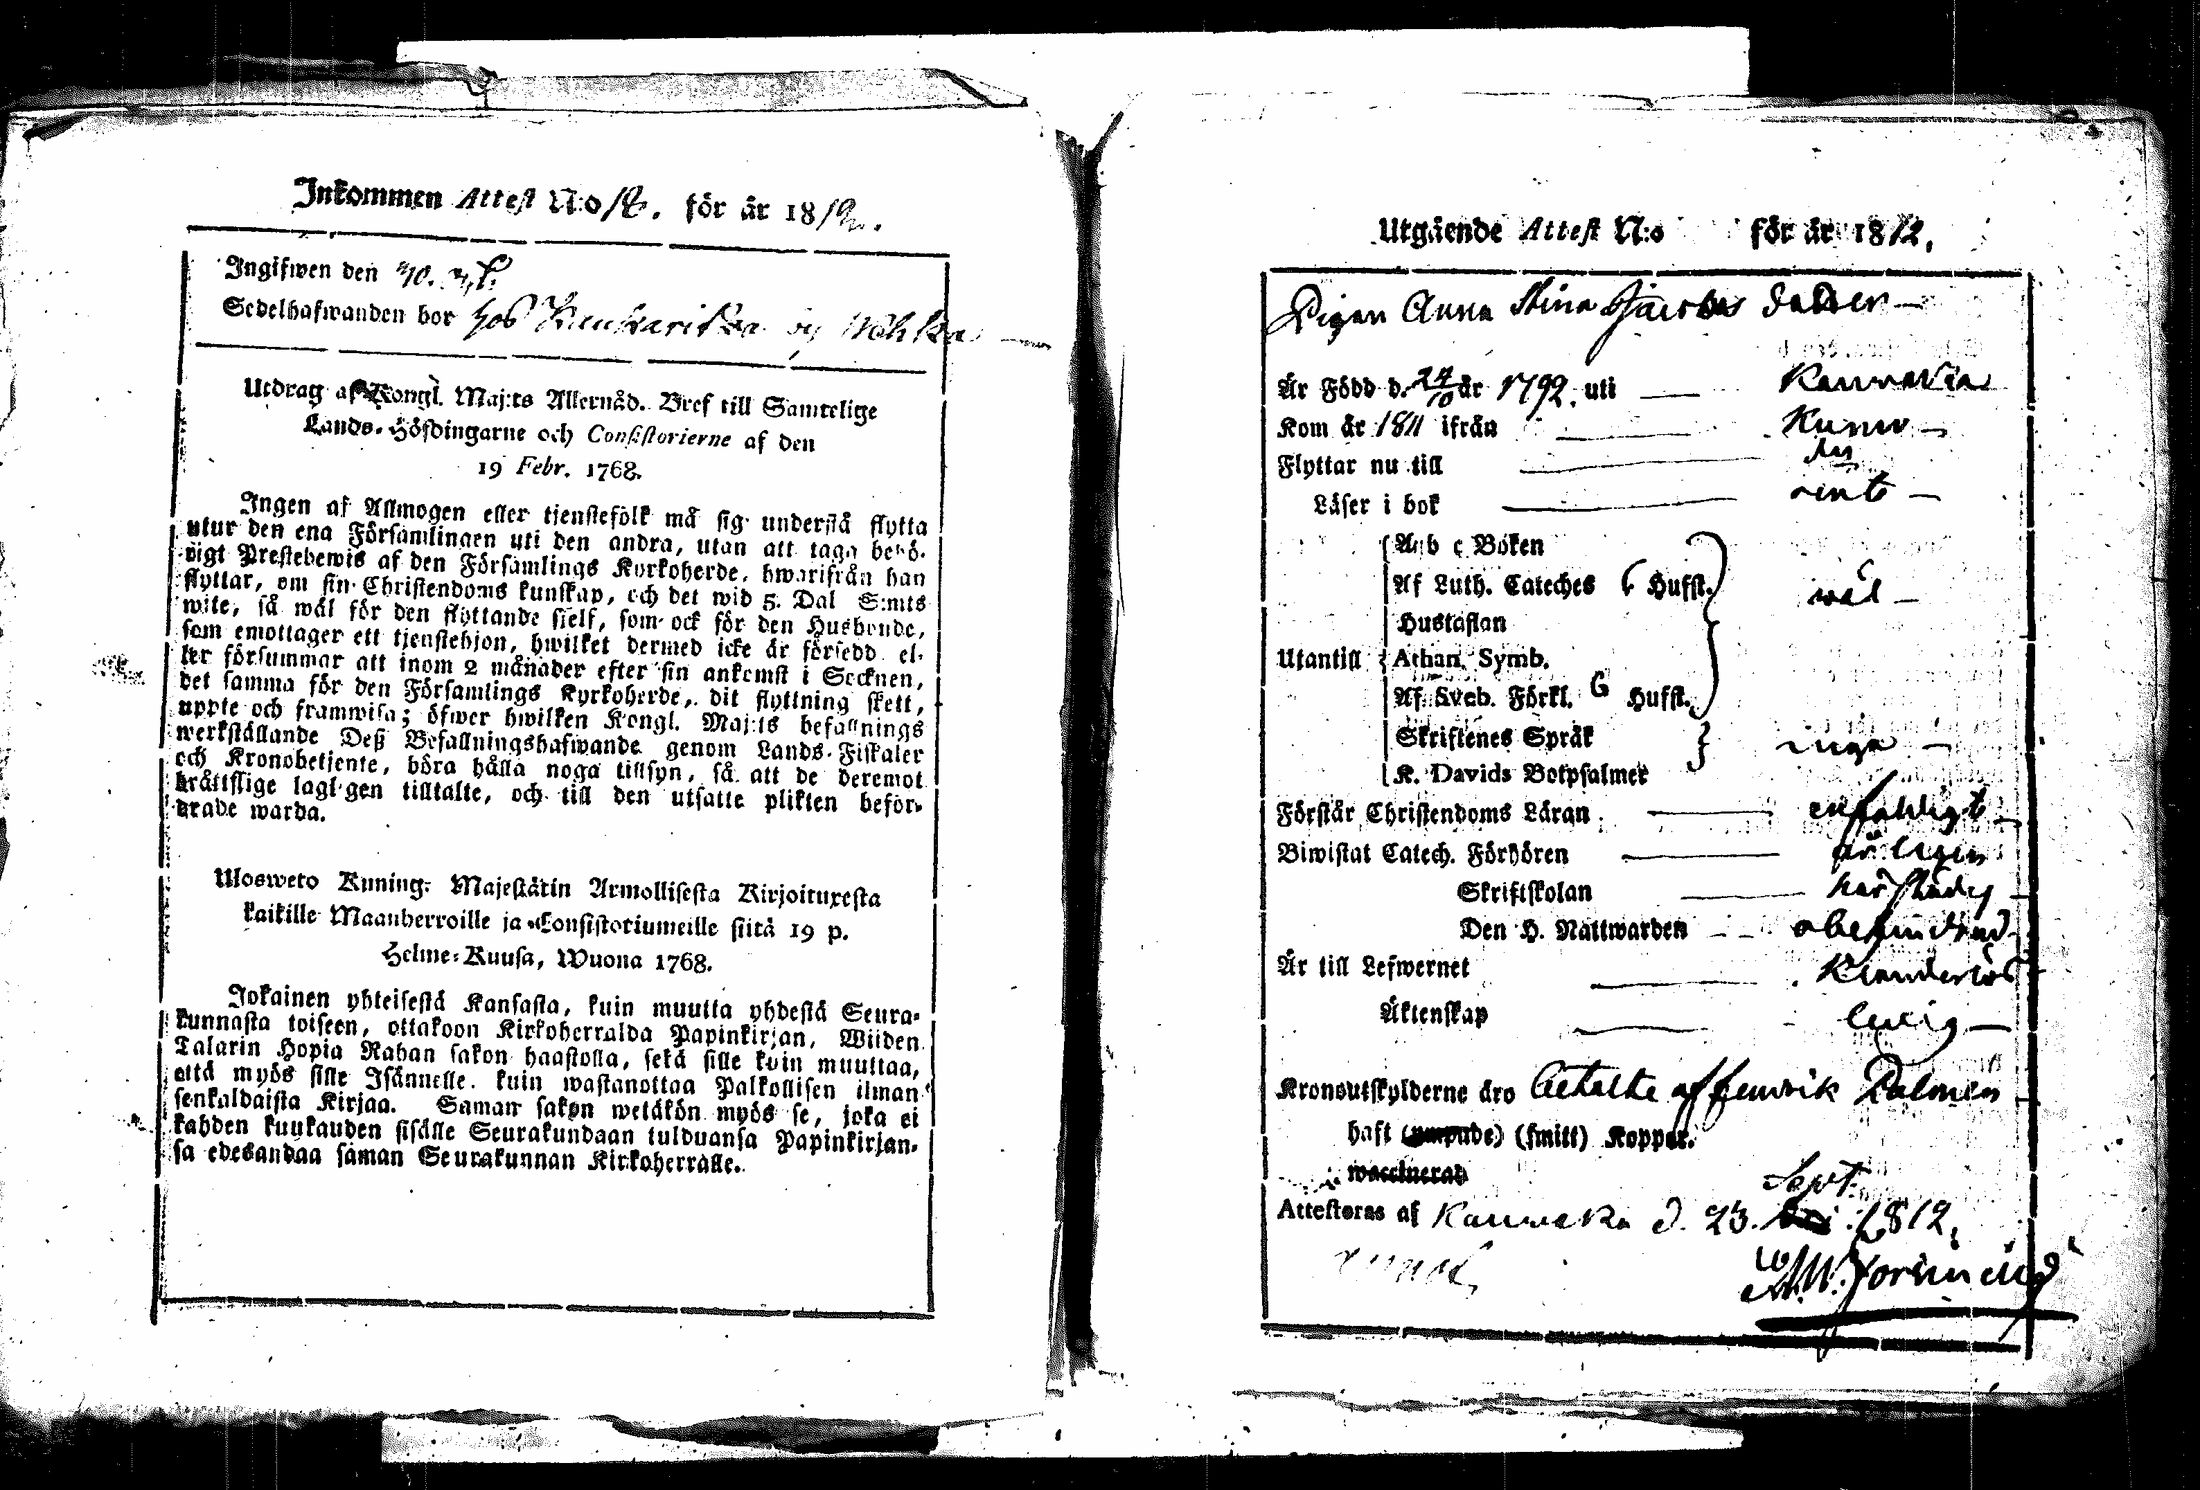 Inkommen Attest N:o 18. för år 1812.
Ingifwen den
Sedelhafwanden bor hos
Utdrag af Kongl. Maj:ts Allernåd. Bref till Samtelige
Lands-Höfdingarne och Consistorierne af den
19 Febr. 1768.
Ingen af Allmogen eller tjenstefolk må sig understå flytta
utur den ena Församlingen uti den andra, utan att taga behö-
rigt Prestebewis af den Församlings Kyrkoherde, hwarifrån han
flyttar, om sin Christendoms kunskap, och det wid 5. Dal S:mts
wite, så wäl för den flyttande sjelf, som ock för den Husbonde,
som emottager ett tjenstehjon, hwilket dermed icke är försedd el-
ler försummar att inom 2 månader efter sin ankomst i Socknen,
det samma för den Församlings Kyrkoherde, dit flyttning skett,
uppte och framwisa; öfwer hwilken Kongl. Maj:ts befallnings
werkställande Deß Befallningshafwande genom Lands-Fiskaler
och Kronobetjente, böra hålla noga tillsyn, så att de deremot
bråttslige lagligen tilltalte, och till den utsatte plikten beför-
drade warda.
Ulosweto Kuning: Majestätin Armollisesta Kirjoituxesta
kaikille Maanherroille ja Consistoriumeille siitä 19 p.
Helme-Kuusa, Wuona 1768.
Jokainen yhteisestä Kansasta, kuin muutta yhdestä Seura-
kunnasta toiseen, ottakoon Kirkoherralda Papinkirjan, Wiiden
Talarin Hopia Rahan sakon haastolla, sekä sille kuin muuttaa,
että myös sille Isännelle, kuin wastanottaa Palkollisen ilman
senkaldaista Kirjaa. Saman sakon wetäkön myös se, joka ei
kahden kuukauden sisälle Seurakundaan tulduansa Papinkirjan-
sa edesandaa saman Seurakunnan Kirkoherralle.
Utgående Attest N:o för år 1812.
Pigan Anna Stina Jacobs dotter
Är Född d. 24/10 år 1792. uti Kauvatsa
Kom år 1811 ifrån Kumo
Flyttar nu till
Läser i bok rent
A b c Boken
Af Luth. Cateches 6 Hufst.
wäl
Hustaflan
Utantill Athan. Symb.
Af Sveb. Förkl. 6 Hufst.
Skriftenes Språk
inga
K. Davids Botpsalmer
Förstår Christendoms Läran enfaldigt
Biwistat Catech. Förhören årligen
Skriftskolan
Den H. Nattwarden obehindrad
Är till Lefwernet Klanderlös
Äktenskap ledig
Kronoutskylderne äro betalte af fendrik Palmen
haft (ympade) (smitt) Koppor.
waccinerad
Sept.
Attesteras af Kauvatsa d. 23. 1812.